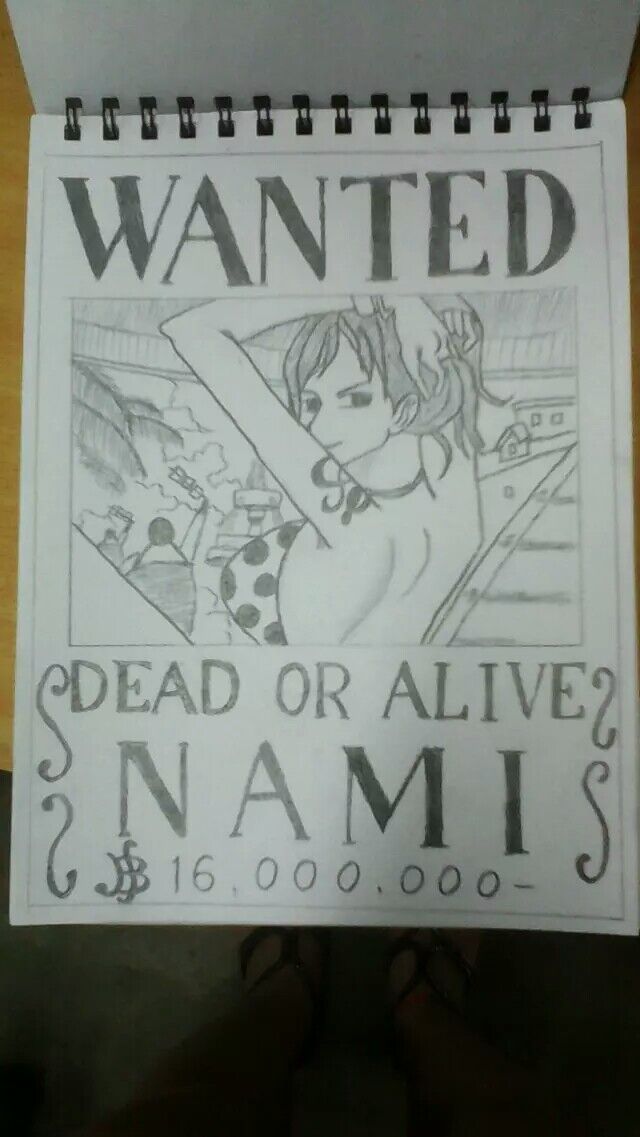 WANTED
DEAD OR ALIVE
NAMI
฿ 16,000,000-